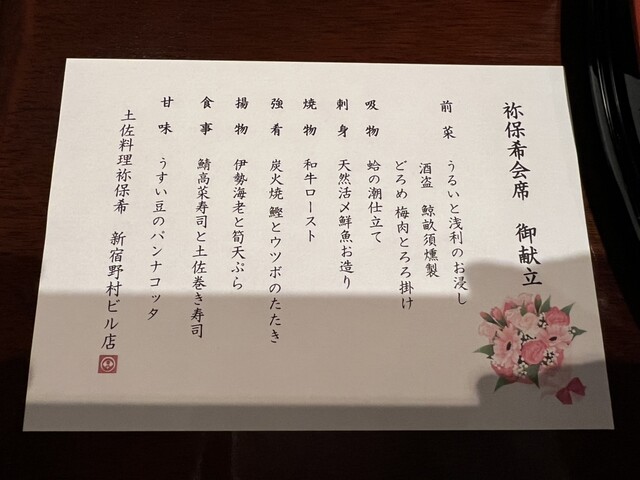 祢保希会席 御献立
前菜 うるいと浅利のお浸し
酒盗 鯨畝須燻製
どろめ 梅肉とろろ掛け
吸物 蛤の潮仕立て
刺身 天然活〆鮮魚お造り
焼物 和牛ロースト
強肴 炭火焼 鰹とウツボのたたき
揚物 伊勢海老と筍天ぷら
食事 鯖高菜寿司と土佐巻き寿司
甘味 うすい豆のパンナコッタ
土佐料理祢保希 新宿野村ビル店